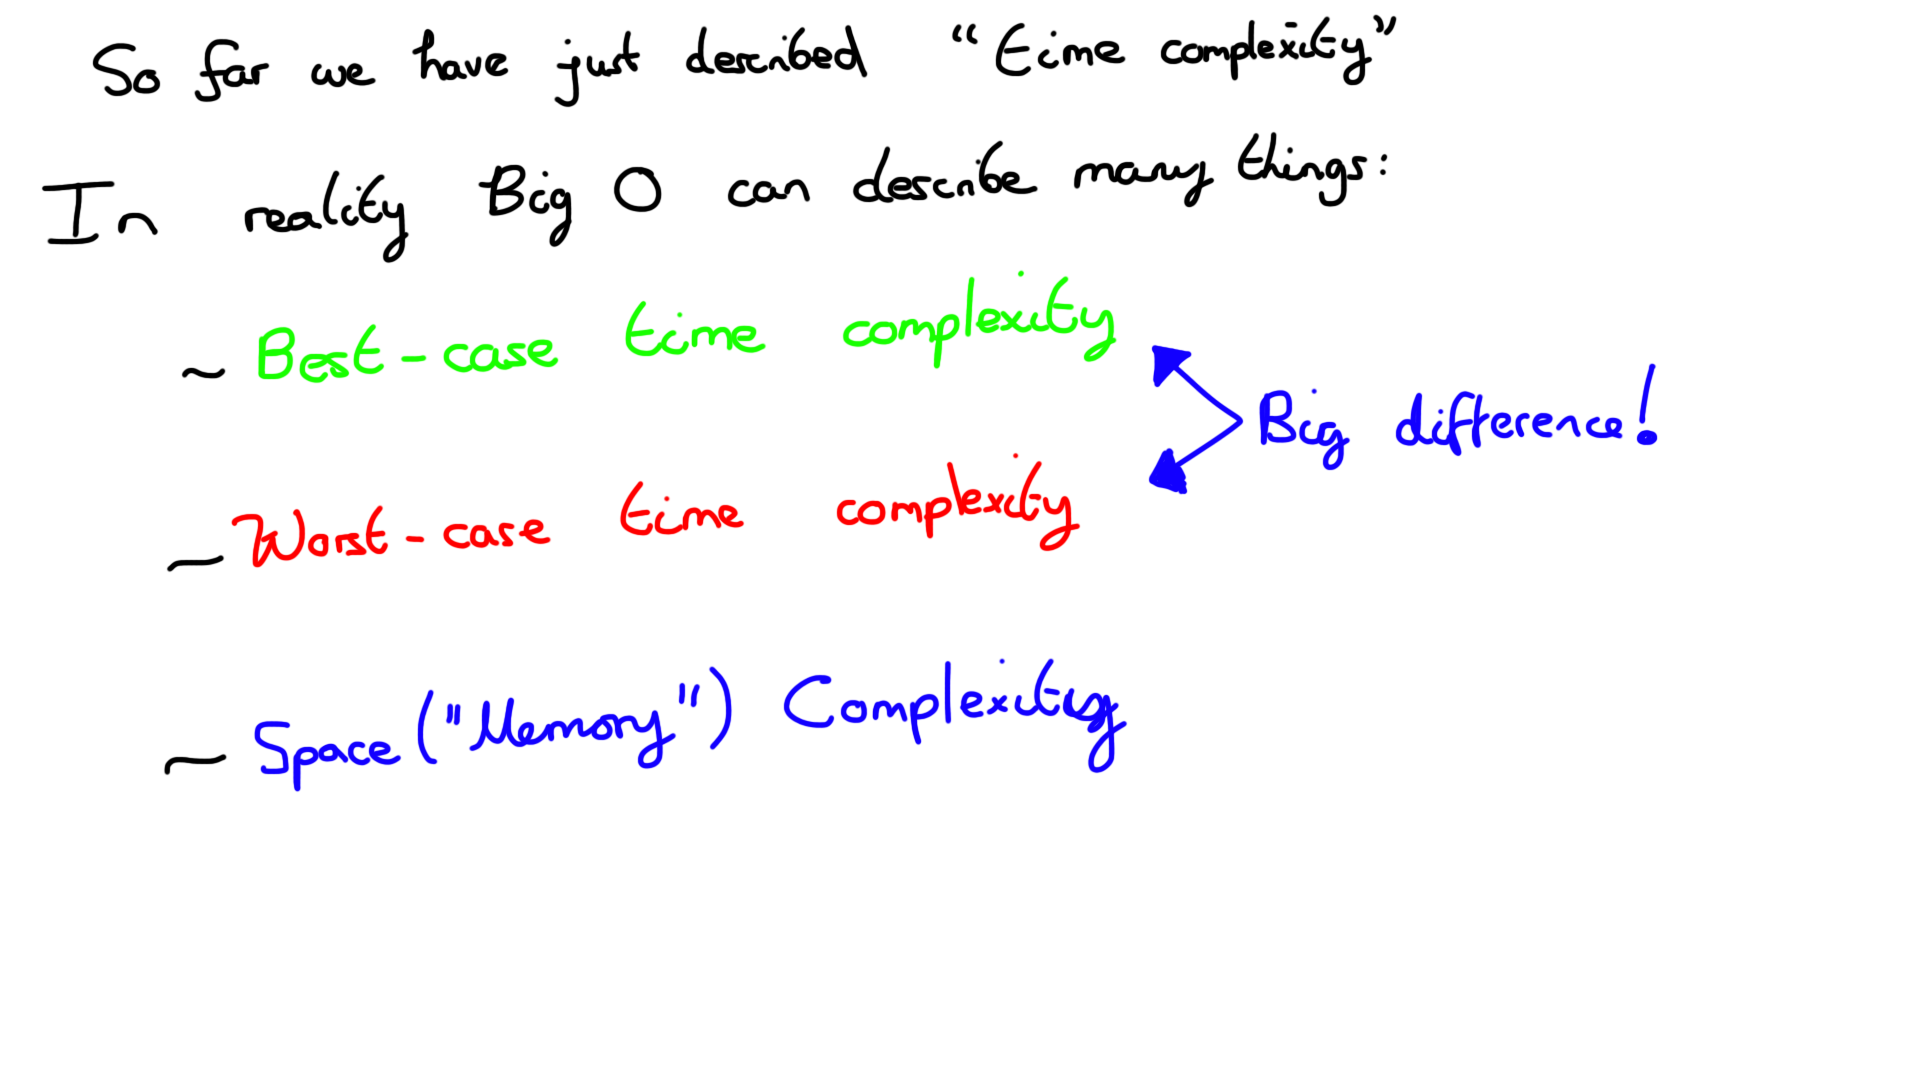 So far we have just described “time complexity”
In reality Big O can describe many things:
~ Best-case time complexity
Big difference!
~ Worst-case time complexity
~ Space ("Memory") Complexity